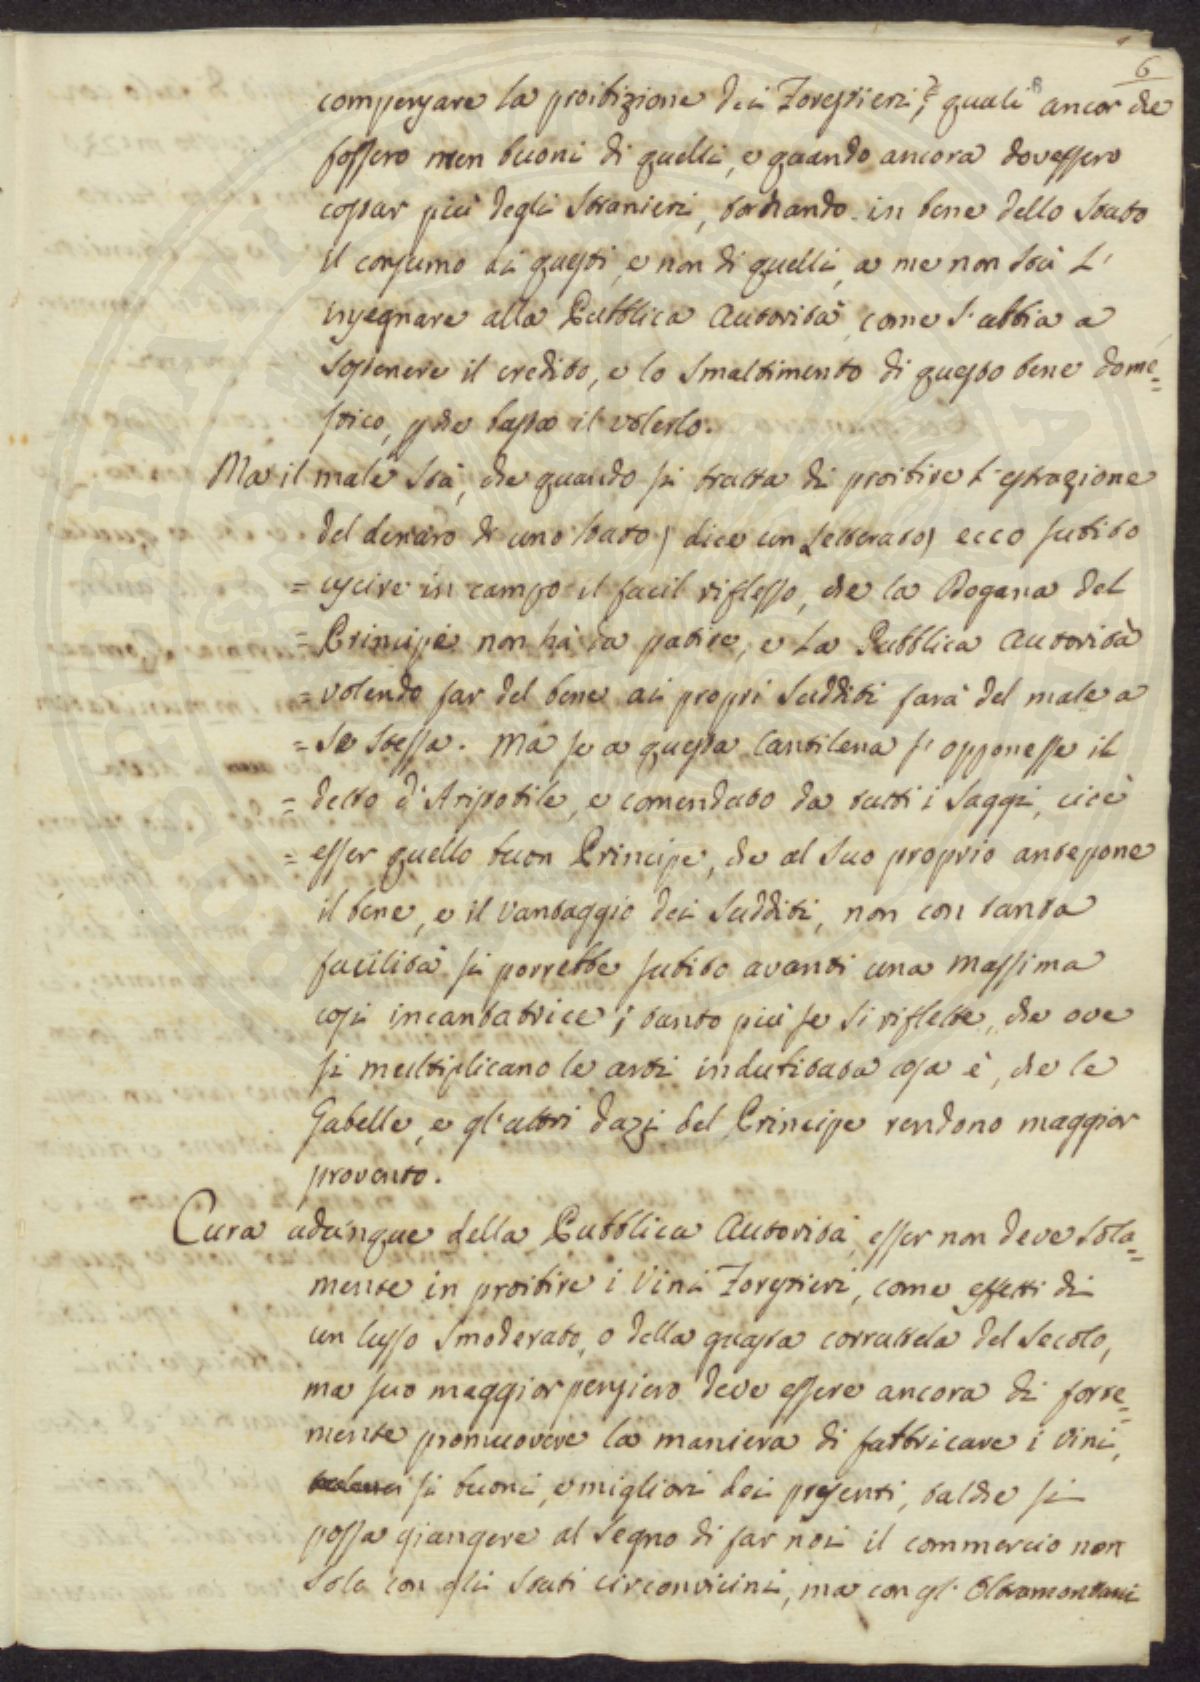 6
compensare la proibizione dei Forestieri; quali ancor che
fossero men buoni di quelli, e quando ancora dovessero
costar più degli stranieri, tornando in bene dello stato
il consumo di questi, e non di quelli, a me non stà l'
insegnare alla Pubblica Autorità, come s'abbia a
sostenere il credito, e lo smaltimento di questo bene dome=
stico, che basta il volerlo.
Ma il male stà, che quando si tratta di proibire l'estrazione
del denaro di uno stato) dice un Letterato) ecco subito
= uscire in campo il facil riflesso, che la Dogana del
= Principe non hà da patire, e la Pubblica Autorità
= volendo far del bene ai propri sudditi farà del male a
= se stessa. Ma se a questa Cantilena s'opponesse il
= detto d'Aristotile, e comendato da tutti i saggi, cioè
= esser quello buon Principe, che al suo proprio antepone
il bene, e il vantaggio dei sudditi, non con tanta
facilità si porrebbe subito avanti una massima
così incantatrice; tanto più se si riflette, che ove
si multiplicano le arti indubitata cosa è, che le
Gabelle, e gl'altri dazi del Principe rendono maggior
provento.
Cura adunque della Pubblica Autorità, esser non deve sola=
mente in proibire i Vini Forestieri, come effetti di
un lusso smoderato, o della guasta corruttela del secolo,
ma suo maggior pensiero deve essere ancora di forte=
mente promuovere la maniera di fabbricare i vini,
si buoni, e migliori dei presenti, talche si
possa giungere al segno di far noi il commercio non
solo con gli stati circonvicini, ma con gl'Oltramontani